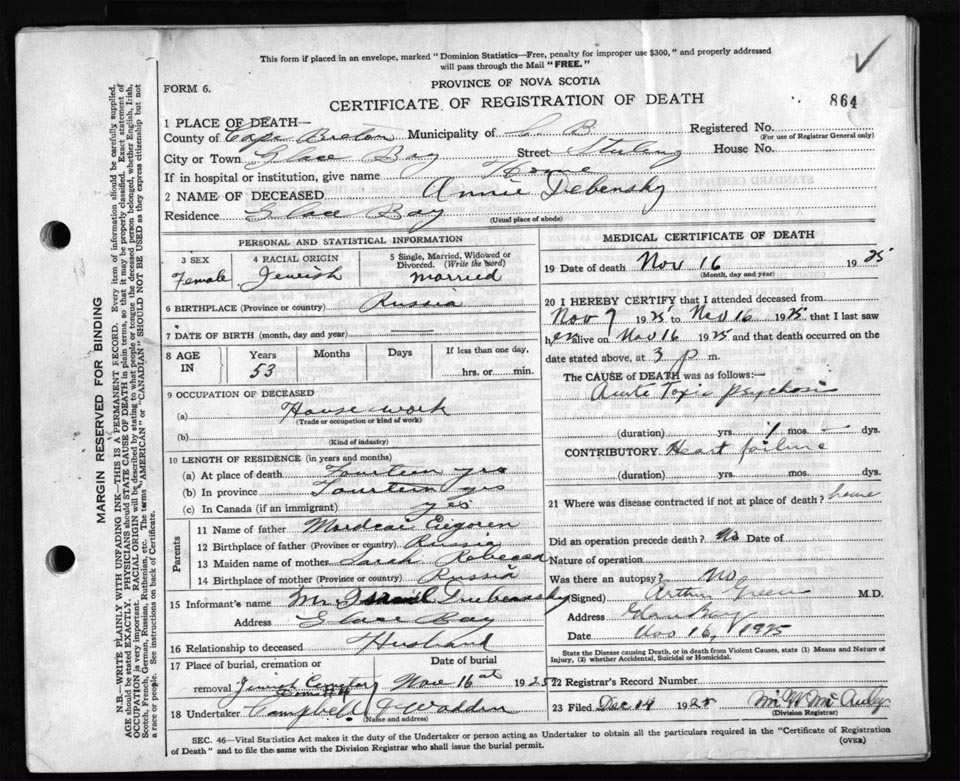 This form if placed in an envelope, marked "Dominion Statistics—Free, penalty for improper use $300," and properly addressed
will pass through the Mail "FREE."
FORM 6.
PROVINCE OF NOVA SCOTIA
CERTIFICATE OF REGISTRATION OF DEATH
864
MARGIN RESERVED FOR BINDING
N.B.—WRITE PLAINLY WITH UNFADING INK—THIS IS A PERMANENT RECORD. Every item of information should be carefully supplied.
AGE should be stated EXACTLY. PHYSICIANS should STATE CAUSE OF DEATH in plain terms, so that it may be properly classified. Exact statement of
OCCUPATION is very important. RACIAL ORIGIN will be described by stating to what people or tongue the deceased person belonged, whether English, Irish,
Scotch, French, German, Russian, Ruthenian, etc. The terms "AMERICAN" or "CANADIAN" SHOULD NOT BE USED as they express citizenship but not
a race or people. See instructions on back of Certificate.
1 PLACE OF DEATH—
County of Cape Breton Municipality of C B Registered No.
(For use of Registrar General only)
City or Town Glace Bay Street Sterling House No.
If in hospital or institution, give name Home
2 NAME OF DECEASED Annie Debensky
Residence Glace Bay
(Usual place of abode)
PERSONAL AND STATISTICAL INFORMATION
3 SEX
Female
4 RACIAL ORIGIN
Jewish
5 Single, Married, Widowed or
Divorced. (Write the word)
Married
6 BIRTHPLACE (Province or country) Russia
7 DATE OF BIRTH (month, day and year)
8 AGE IN
Years Months Days If less than one day,
53 hrs. or min.
9 OCCUPATION OF DECEASED
(a) House work
(Trade or occupation or kind of work)
(b)
(Kind of industry)
10 LENGTH OF RESIDENCE (in years and months)
(a) At place of death Fourteen yrs
(b) In province Fourteen yrs
(c) In Canada (if an immigrant) yes
Parents
11 Name of father
12 Birthplace of father (Province or country) Russia
13 Maiden name of mother Sarah Rebecca
14 Birthplace of mother (Province or country) Russia
15 Informant's name Mr Israel
Address Glace Bay
16 Relationship to deceased Husband
17 Place of burial, cremation or removal Date of burial
Jewish Cemetery Nov 16th 1925
18 Undertaker Campbell & Wadden
(Name and address)
MEDICAL CERTIFICATE OF DEATH
19 Date of death Nov 16 1925
(Month, day and year)
20 I HEREBY CERTIFY that I attended deceased from
Nov 9 1925 to Nov 16 1925 that I last saw
her alive on Nov 16 1925 and that death occurred on the
date stated above, at 3 p m.
The CAUSE of DEATH was as follows:
Acute Toxic psychosis
(duration) yrs. 1 mos. – dys.
CONTRIBUTORY Heart failure
(duration) yrs. mos. dys.
21 Where was disease contracted if not at place of death? home
Did an operation precede death? No Date of
Nature of operation
Was there an autopsy? No
(Signed) Arthur Green M.D.
Address Glace Bay
Date Nov 16, 1925
State the Disease causing Death, or in Death from Violent Causes, state (1) Means and Nature of
Injury, (2) whether Accidental, Suicidal or Homicidal.
22 Registrar's Record Number
23 Filed Dec 14 1925
(Division Registrar)
SEC. 46—Vital Statistics Act makes it the duty of the Undertaker or person acting as Undertaker to obtain all the particulars required in the "Certificate of Registration
of Death" and to file the same with the Division Registrar who shall issue the burial permit.
(OVER)